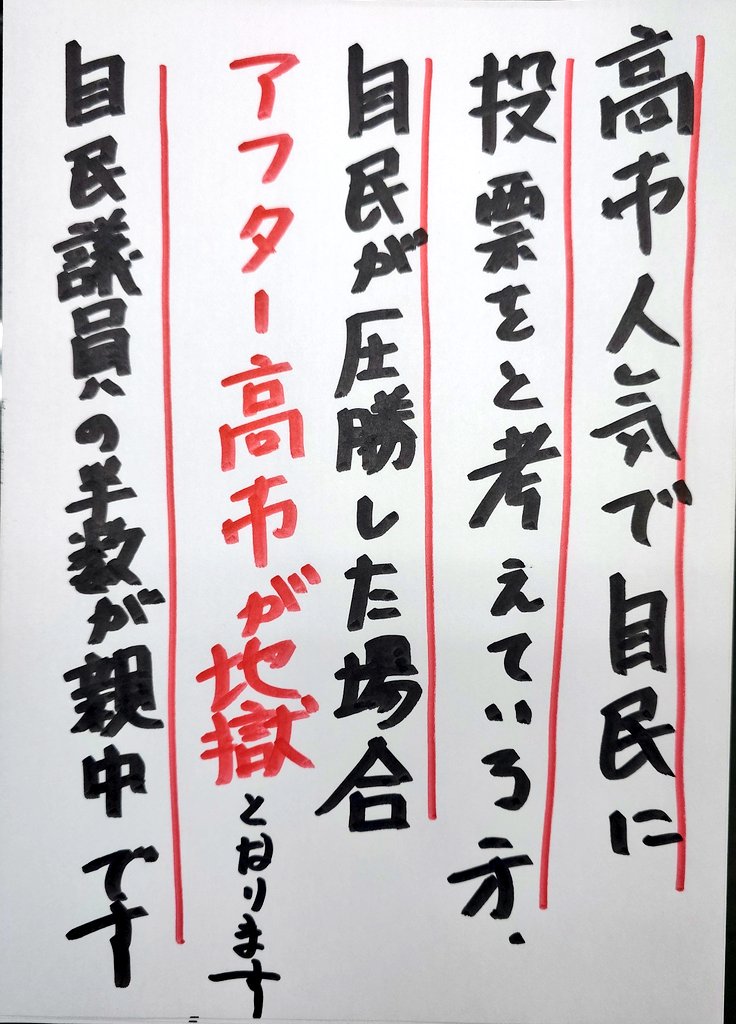 高市人気で自民に
投票をと考えている方、
自民が圧勝した場合
アフター高市が地獄となります
自民議員への半数が親中です